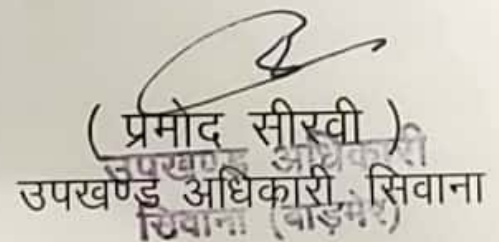 ( प्रमोद सीरवी )
उपखण्ड अधिकारी
उपखण्ड अधिकारी, सिवाना
सिवाना (बाड़मेर)